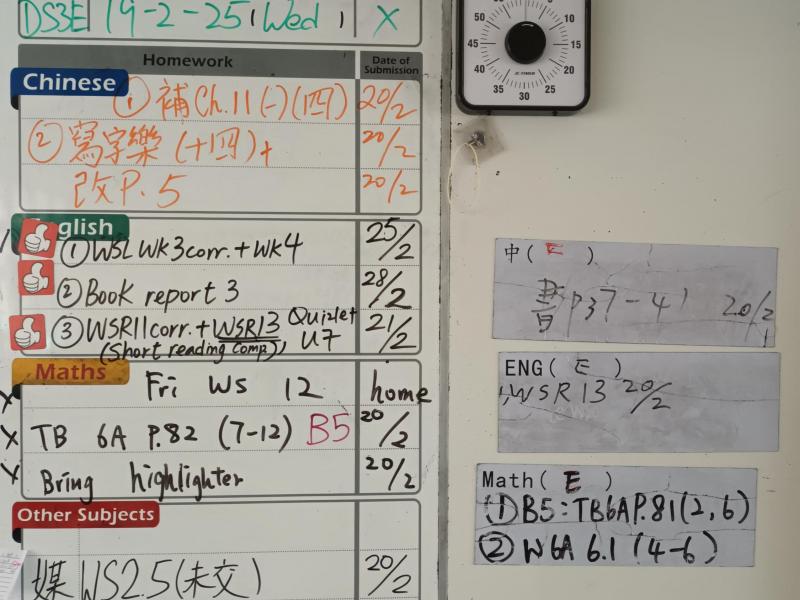 DS3E 19-2-25, Wed, X
Homework Date of Submission
Chinese
① 補Ch.11(一)(四) 20/2
② 寫字樂(十四)+ 20/2
改P.5 20/2
English
① WSL WK3corr.+WK4 25/2
② Book report 3 28/2
③ WSR11corr.+WSR13, Quizlet U7 21/2
(Short reading comp)
Maths
Fri WS 12 home
X TB 6A P.82 (7-12) B5 20/2
X Bring highlighter 20/2
Other Subjects
媒 WS2.5(未交) 20/2
50 10
45 15
40 20
35 30 25
中( E )
書p37-41 20/2
ENG( E )
WSR13 20/2
Math( E )
① B5:TB6AP.81(2,6)
② W6A 6.1 (4-6)